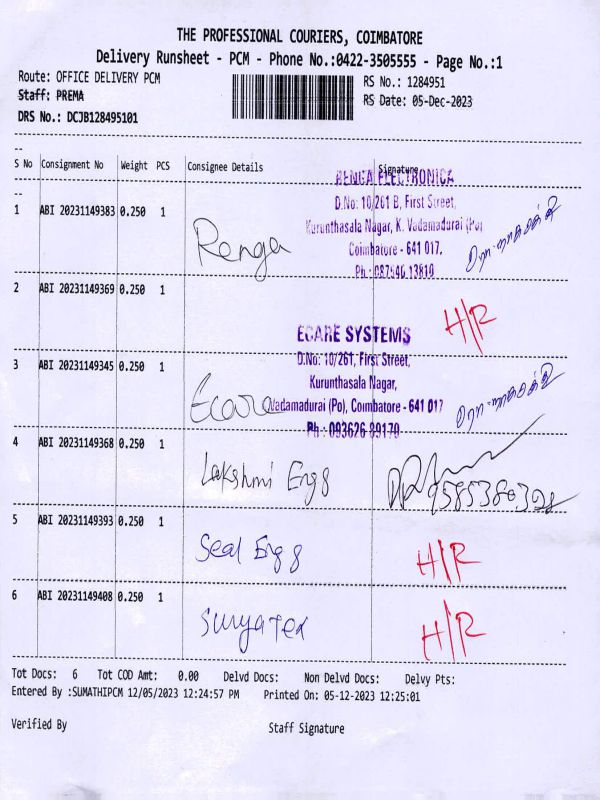 THE PROFESSIONAL COURIERS, COIMBATORE
Delivery Runsheet - PCM - Phone No.:0422-3505555 - Page No.:1
Route: OFFICE DELIVERY PCM
RS No.: 1284951
Staff: PREMA
RS Date: 05-Dec-2023
DRS No.: DCJB128495101
S No Consignment No Weight PCS Consignee Details Signature
RENGA ELECTRONICA
1 ABI 20231149383 0.250 1
D.No: 10/261 B, First Street,
Kurunthasala Nagar, K. Vadamadurai (Po)
Renga
Coimbatore - 641 017.
Ph : 087540 13810
2 ABI 20231149369 0.250 1
H/R
ECARE SYSTEMS
3 ABI 20231149345 0.250 1
D.No: 10/261, First Street,
Kurunthasala Nagar,
Ecare
Vadamadurai (Po), Coimbatore - 641 017
Ph : 093626 99170
4 ABI 20231149368 0.250 1
Lakshmi Engg
5 ABI 20231149393 0.250 1
Seal Engg
H/R
6 ABI 20231149408 0.250 1
Suryatex
H/R
Tot Docs: 6 Tot COD Amt: 0.00 Delvd Docs: Non Delvd Docs: Delvy Pts:
Entered By :SUMATHIPCM 12/05/2023 12:24:57 PM Printed On: 05-12-2023 12:25:01
Verified By
Staff Signature